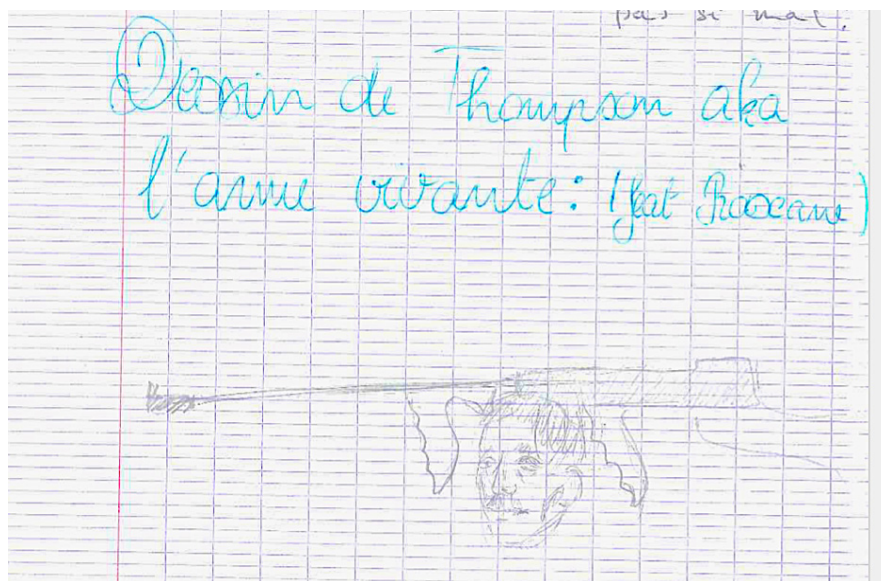 pas si mal.
Dessin de Thompson aka
l'arme vivante : (feat Roxane)